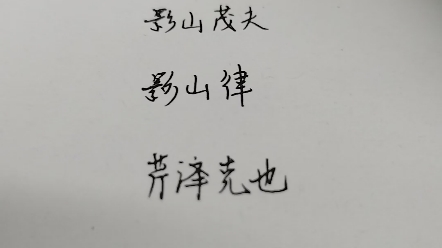 影山茂夫
影山律
芹泽克也